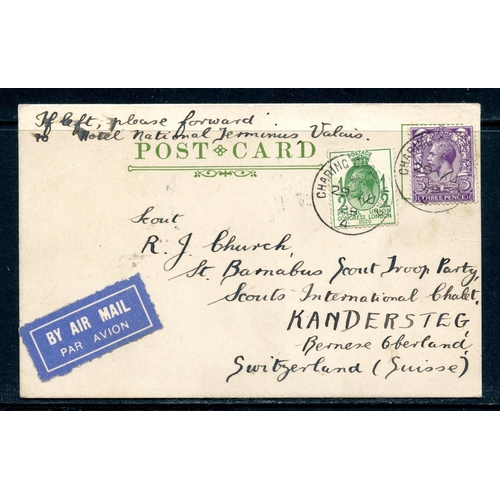 If left, please forward
to Hotel National Terminus Valais.
POST CARD
CHARING
29 JU
29
POSTAL UNION
CONGRESS LONDON
1929
CHARING
THREE PENCE
Scout
R. J. Church,
St. Barnabus Scout Troop Party,
Scouts International Chalet,
KANDERSTEG,
Bernese Oberland,
Switzerland (Suisse)
BY AIR MAIL
PAR AVION